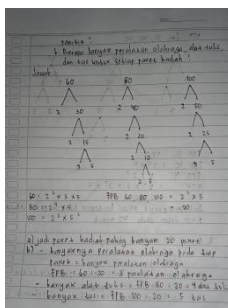 panitia ?
b. Berapa banyak peralatan olahraga, alat tulis,
dan tas untuk setiap paket hadiah ?
Jawab :
60 80 100
2 30 2 40 2 50
2 15 2 20 2 25
3 5 2 10 5 5
2 5
60 = 2² x 3 x 5 FPB 60, 80, 100 = 2² x 5
80 = 2⁴ x 5 = 20
100 = 2² x 5²
a) jadi paket hadiah paling banyak 20 paket
b) - banyaknya peralatan olahraga pada tiap
paket = banyak peralatan olahraga
: FPB = 60 : 20 = 3 peralatan olahraga
- banyak alat tulis : FPB = 80 : 20 = 4 alat tulis
- banyak tas : FPB = 100 : 20 = 5 tas